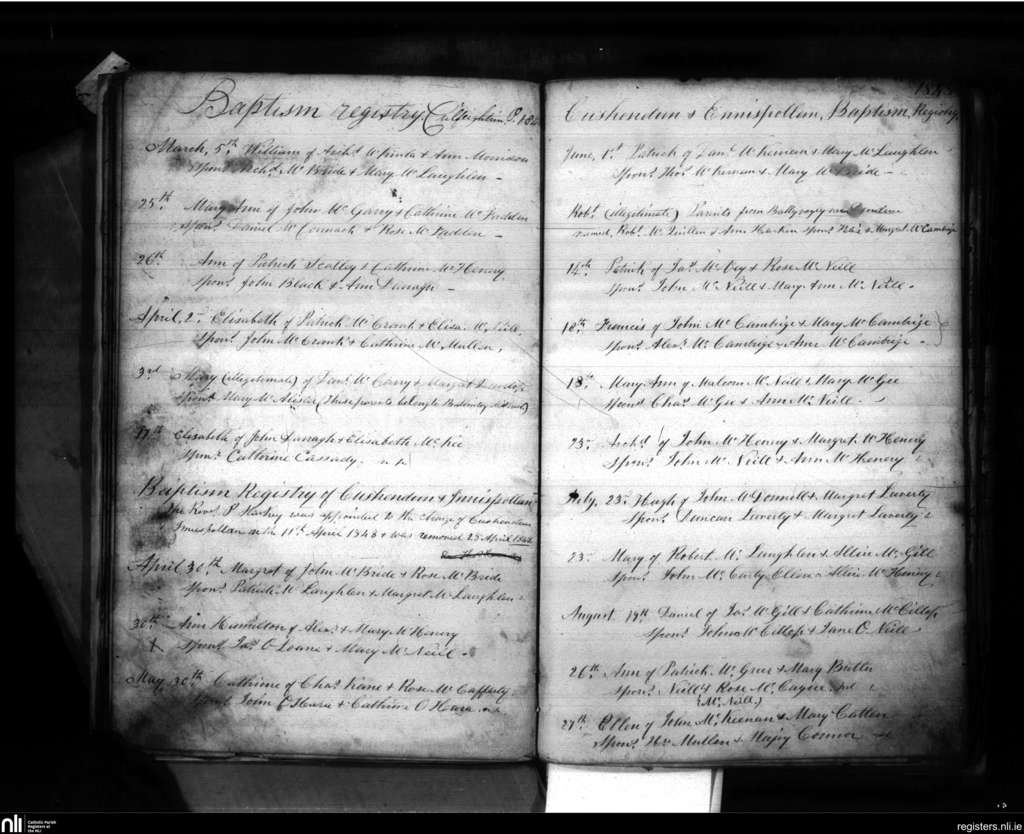 Baptism registry, Culfeightrin P. 184
March, 5th William of Archd & Ann Morrison
Sponr Archd Mc Bride & Mary Mc Laughlen -
25th Mary Ann of John Mc Garry & Catherine Mc Fadden
Sponr Daniel Mc Cormack & Rose Mc Fadden -
26th Ann of Patrick Scolley & Catherine Mc Henry
Sponr John Black & Ann Darragh -
April, 2 Elisabeth of Patrick Mc Crank & Eliza Mc Neill
Sponr John Mc Crank & Catherine Mc Mullen,
3rd Mary (illegitimate) of Danl Mc Carry & Margat
Sponr Mary Mc Alister (these parents belong to
17th Elisabeth of John Darragh & Elisabeth Mc Kee
Sponr Catherine Cassady.
Baptism Registry of Cushendun & Innispollan
The Revd P Harkey was appointed to the charge of Cushendun
Innispollan on the 11th April 1848 & was removed 23 April 1848
April 30th Margrat of John Mc Bride & Rose Mc Bride
Sponr Patrick Mc Laughlen & Margret Mc Laughlen
30th Ann Hamilton of Alexr & Mary Mc Henry
x Sponr Jas O Loane & Mary Mc Neill -
May 30th Catherine of Chas Kane & Rose Mc Cafferty
Sponr John O'Hara & Catherine O Hara
184
Cushendun & Ennispollan, Baptism Registry
June, 1st Patrick of Danl Mc Kiernan & Mary Mc Laughlen
Sponr Thos Mc Kiernan & Mary Mc Bride -
Robt (illegitimate) Parents from Ballyvoy
named, Robt Mc Quillen & Ann Harken Sponr & Margret Mc Cambige
14th Patrick of Jas Mc Vey & Rose Mc Neill
Sponr John Mc Neill & Mary Ann Mc Neill -
18th Francis of John Mc Cambige & Mary Mc Cambige
Sponr Alexr Mc Cambige & Ann Mc Cambige -
18th Mary Ann of Malcom Mc Neill & Mary Mc Gee
Sponr Chas Mc Gee & Ann Mc Neill -
23 Archd of John Mc Henry & Margret Mc Henry
Sponr John Mc Neill & Ann Mc Henery
July, 23 Hugh of John McDonnell & Margret Laverty
Sponr Duncan Laverty & Margret Laverty
23 Mary of Robert Mc Laughlen & Allice Mc Gill
Sponr John Mc Curly & Allice Mc Henry
August 19th Daniel of Jas Mc Gill & Catherine Mc Cillop
Sponr John Mc Cillop & Jane O Neill -
26th Ann of Patrick Mc Grer & Mary Butler
Sponr Neill & Rose Mc Cague
(Mc Neill)
27th Ellen of John Mc Keenan & Mary Catten
Sponr Hu Mullen & Majey Connor
nli Catholic Parish Registers at the NLI
registers.nli.ie